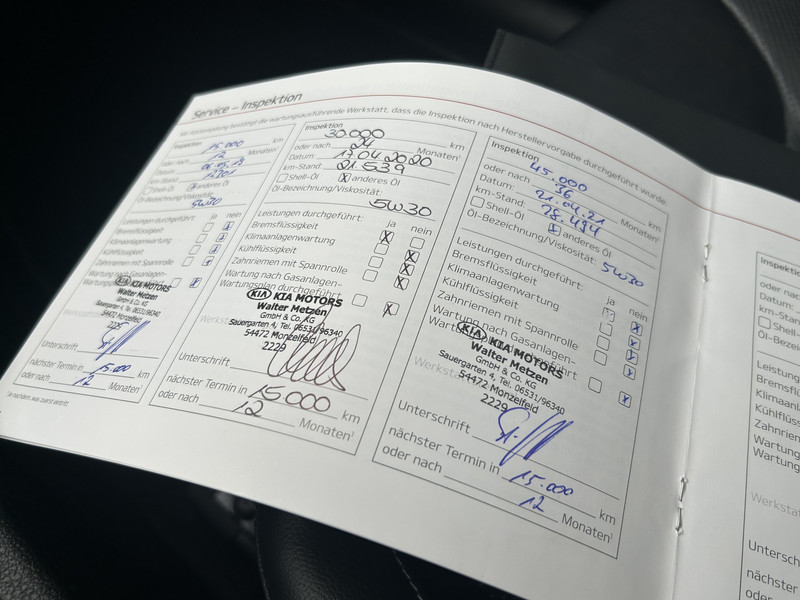 Service – Inspektion
dass die Inspektion nach Herstellervorgabe durchgeführt wurde.
Inspektion 15.000 km
oder nach 12 Monaten¹
Datum
km-Stand:
Shell-Öl anderes Öl
Öl-Bezeichnung/Viskosität:
5W30
Leistungen durchgeführt: ja nein
Bremsflüssigkeit
Klimaanlagenwartung
Kühlflüssigkeit
Zahnriemen mit Spannrolle
Wartung nach Gasanlagen-
KIA KIA MOTORS
Walter Metzen
GmbH & Co. KG
Sauergarten 4, Tel. 06531/96340
54472 Monzelfeld
2229
Unterschrift
nächster Termin in 15.000 km
oder nach 12 Monaten¹
Inspektion
30.000 km
oder nach 24 Monaten¹
Datum 17.04.2020
km-Stand: 21.539
Shell-Öl X anderes Öl
Öl-Bezeichnung/Viskosität:
5W30
Leistungen durchgeführt: ja nein
Bremsflüssigkeit X
Klimaanlagenwartung X
Kühlflüssigkeit X
Zahnriemen mit Spannrolle X
Wartung nach Gasanlagen-
Wartungsplan durchgeführt X
KIA KIA MOTORS
Walter Metzen
GmbH & Co. KG
Sauergarten 4, Tel. 06531/96340
54472 Monzelfeld
2229
Unterschrift
nächster Termin in 15000 km
oder nach 12 Monaten¹
Inspektion
45.000 km
oder nach 36 Monaten¹
Datum: 21.04.21
km-Stand: 28.494
Shell-Öl x anderes Öl
Öl-Bezeichnung/Viskosität: 5W30
Leistungen durchgeführt: ja nein
Bremsflüssigkeit x
Klimaanlagenwartung x
Kühlflüssigkeit x
Zahnriemen mit Spannrolle x
Wartung nach Gasanlagen-
x
KIA KIA MOTORS
Walter Metzen
GmbH & Co. KG
Sauergarten 4, Tel. 06531/96340
54472 Monzelfeld
2229
Unterschrift
nächster Termin in 15.000 km
oder nach 12 Monaten¹
Inspektion
oder nach
Datum:
km-Stand:
Shell-Öl
Öl-Bezei
Leistungen
Bremsflüs
Klimaanl
Kühlflüss
Zahnriem
Wartung
Wartung
Werksta
Untersch
nächster
oder na